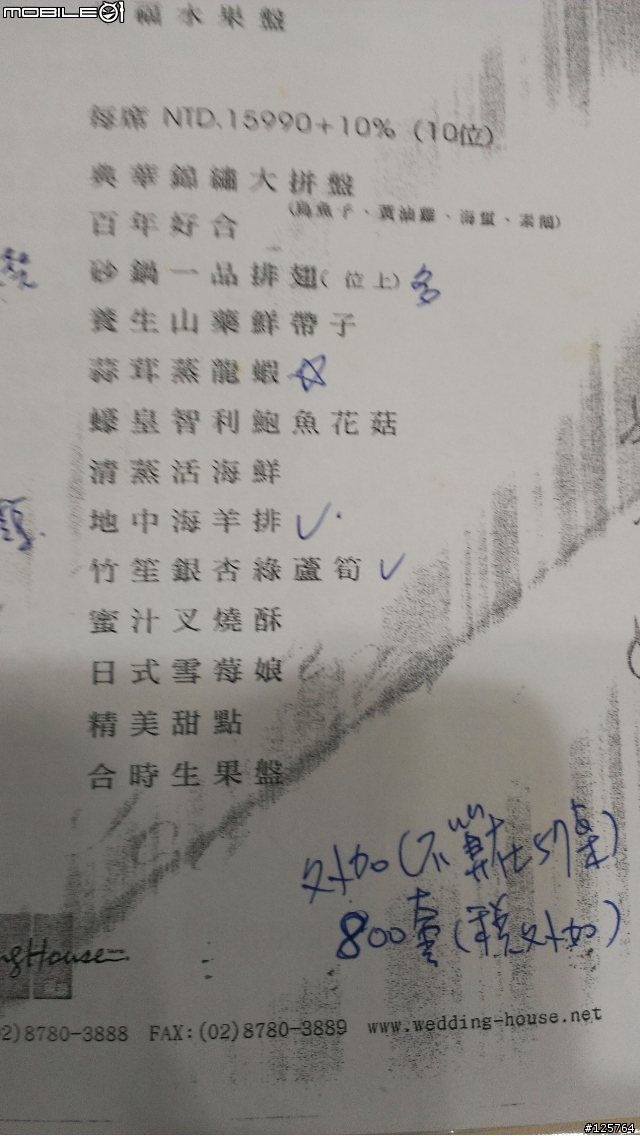 MOBILE01
福水果盤
每席 NTD.15990+10% (10位)
典華錦繡大拼盤
(烏魚子、黃油雞、海蜇、素鵝)
百年好合
砂鍋一品排翅(位上)
養生山藥鮮帶子
蒜茸蒸龍蝦☆
蠔皇智利鮑魚花菇
清蒸活海鮮
地中海羊排 ✓
竹笙銀杏綠蘆筍 ✓
蜜汁叉燒酥
日式雪莓娘
精美甜點
合時生果盤
外加(不算在57桌)
800套(稅外加)
ngHouse
02)8780-3888 FAX:(02)8780-3889 www.wedding-house.net
#125764